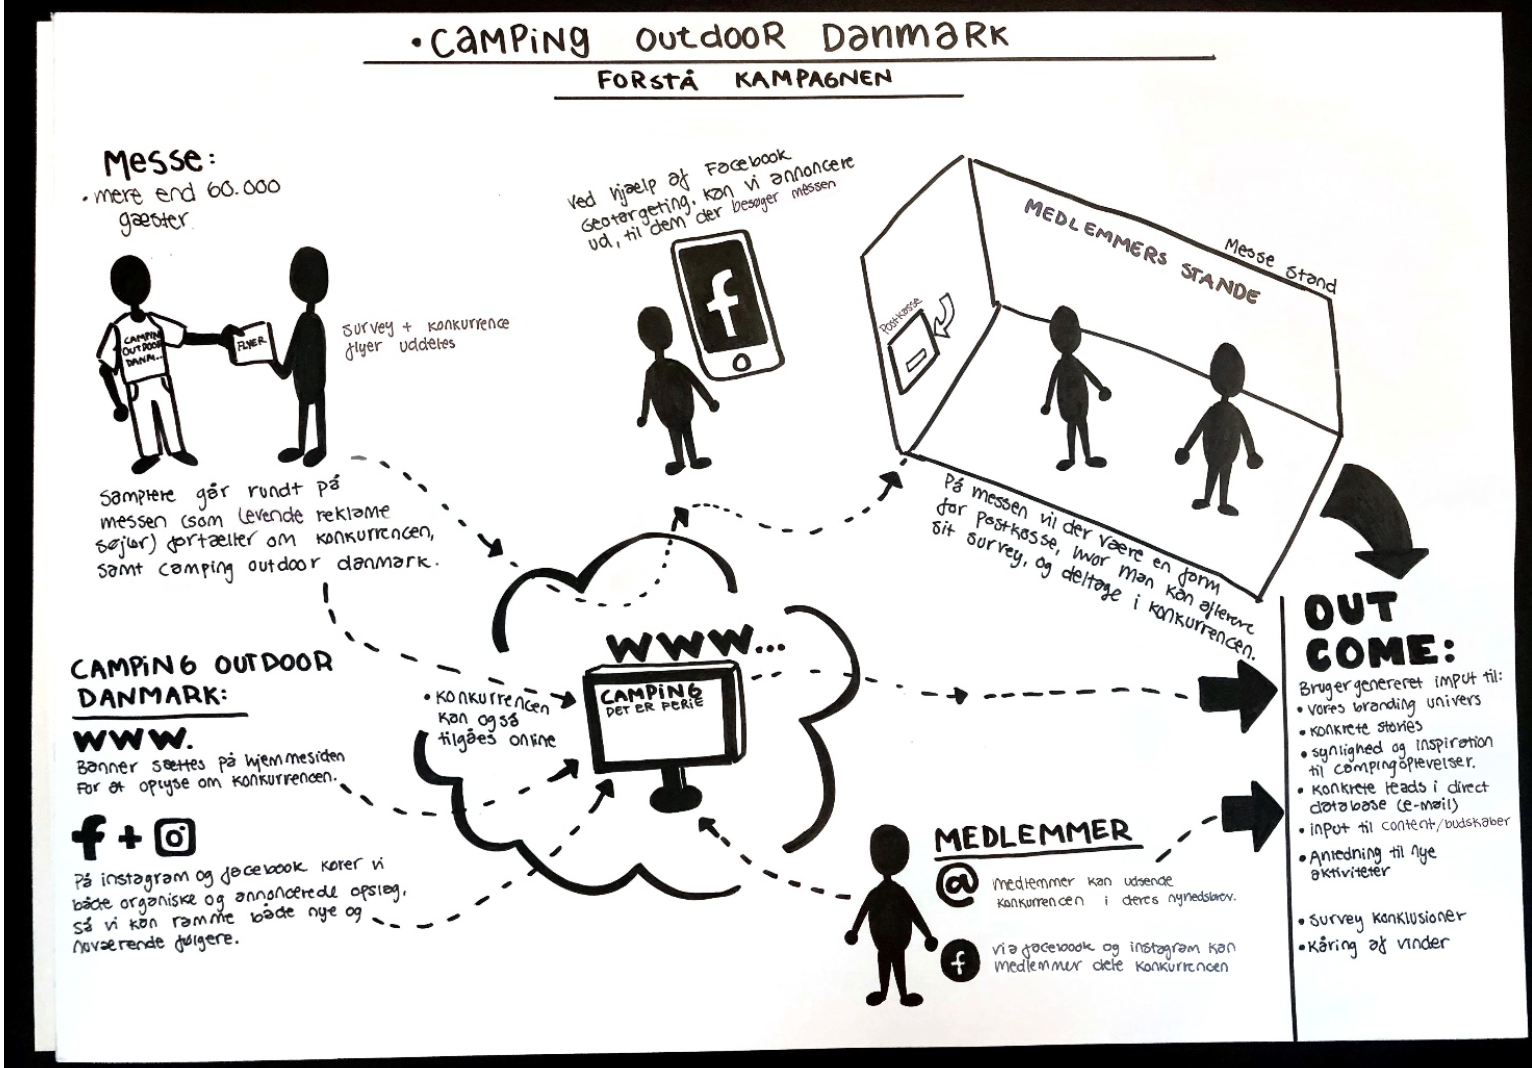 • CAMPING OUTDOOR DANMARK
FORSTÅ KAMPAGNEN
Messe:
• mere end 60.000
gæster
CAMPING
OUTDOOR
DANM...
FLYER
survey + konkurrence
flyer uddeles
Samplere går rundt på
messen (som levende reklame
søjler) fortæller om konkurrencen,
samt camping outdoor danmark.
Ved hjælp af Facebook
Geotargeting, kan vi annoncere
ud, til dem der besøger messen
f
MEDLEMMERS STANDE
Messe stand
Postkasse
På messen vil der være en form
for postkasse, hvor man kan aflevere
sit survey, og deltage i konkurrencen.
CAMPING OUTDOOR
DANMARK:
WWW.
Banner sættes på hjemmesiden
for at oplyse om konkurrencen.
f +
På instagram og facebook kører vi
både organiske og annoncerede opslag,
så vi kan ramme både nye og
nuværende følgere.
WWW...
CAMPING
DET ER FERIE
• Konkurrencen
kan også
tilgåes online
MEDLEMMER
@ medlemmer kan udsende
konkurrencen i deres nyhedsbrev.
f via facebook og instagram kan
medlemmer dele konkurrencen
OUT
COME:
Brugergenereret imput til:
• vores branding univers
• konkrete stories
• synlighed og inspiration
til campingoplevelser.
• konkrete leads i direct
database (e-mail)
• input til content/budskaber
• Anledning til nye
aktiviteter
• survey konklusioner
• Kåring af vinder